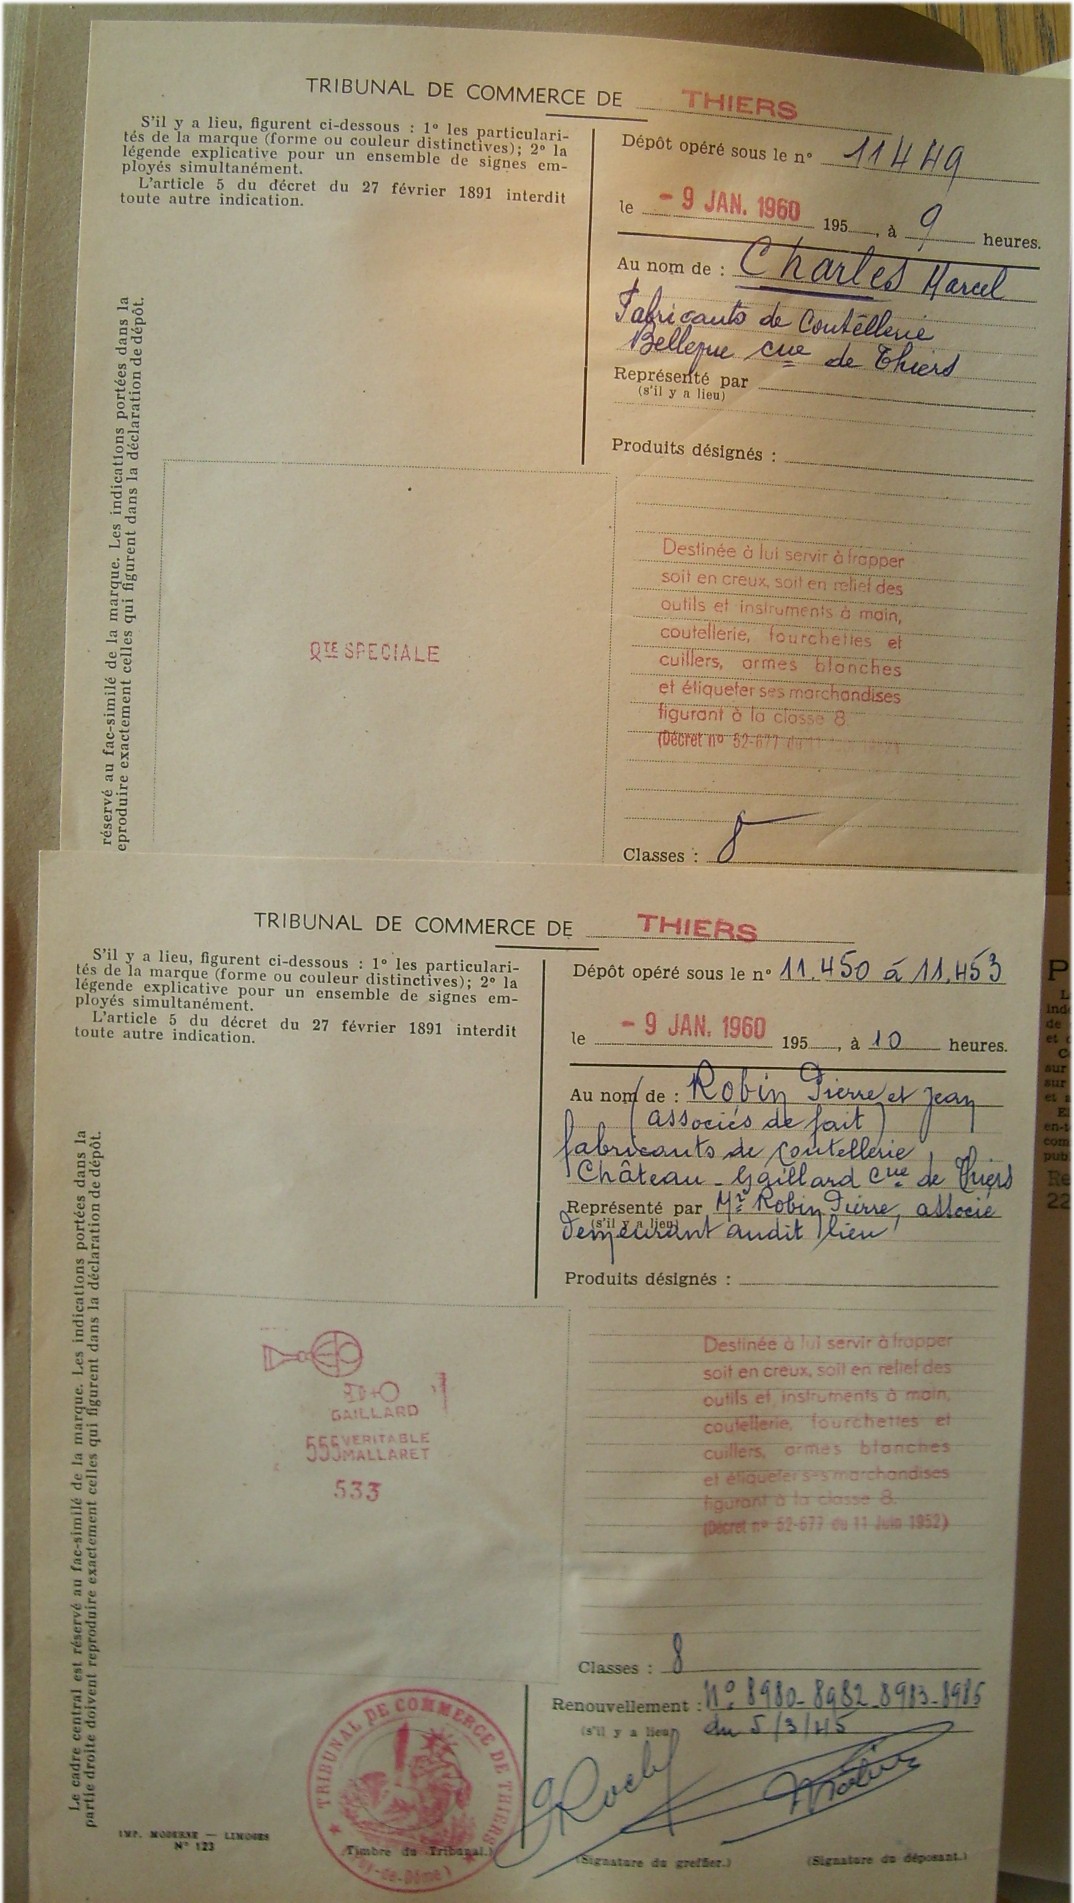 TRIBUNAL DE COMMERCE DE THIERS
S'il y a lieu, figurent ci-dessous : 1° les particulari-
tés de la marque (forme ou couleur distinctives); 2° la
légende explicative pour un ensemble de signes em-
ployés simultanément.
L'article 5 du décret du 27 février 1891 interdit
toute autre indication.
Dépôt opéré sous le n° 11449
le - 9 JAN. 1960 195 , à 9 heures.
Au nom de : Charles Marcel
Fabricants de Coutellerie
Bellevue cne de Thiers
Représenté par
(s'il y a lieu)
Produits désignés :
réservé au fac-similé de la marque. Les indications portées dans la
eproduire exactement celles qui figurent dans la déclaration de dépôt.
QTE SPECIALE
Destinée à lui servir à frapper
soit en creux, soit en relief des
outils et instruments à main,
coutellerie, fourchettes et
cuillers, armes blanches
et étiqueter ses marchandises
figurant à la classe 8.
(Décret n° 52-677 du 11 Juin 1952)
Classes : 8
TRIBUNAL DE COMMERCE DE THIERS
S'il y a lieu, figurent ci-dessous : 1° les particulari-
tés de la marque (forme ou couleur distinctives); 2° la
légende explicative pour un ensemble de signes em-
ployés simultanément.
L'article 5 du décret du 27 février 1891 interdit
toute autre indication.
Dépôt opéré sous le n° 11.450 à 11.453
le - 9 JAN. 1960 195 , à 10 heures.
Au nom de : Robin Pierre et Jean
(associés de fait)
fabricants de coutellerie
Château-Gaillard cne de Thiers
Représenté par Mr Robin Pierre, associé
(s'il y a lieu)
demeurant audit lieu
Produits désignés :
Le cadre central est réservé au fac-similé de la marque. Les indications portées dans la
partie droite doivent reproduire exactement celles qui figurent dans la déclaration de dépôt.
GAILLARD
555 VERITABLE
MALLARET
533
Destinée à lui servir à frapper
soit en creux, soit en relief des
outils et instruments à main,
coutellerie, fourchettes et
cuillers, armes blanches
et étiqueter ses marchandises
figurant à la classe 8.
(Décret n° 52-677 du 11 Juin 1952)
Classes : 8
Renouvellement : N° 8980-8982-8983-8985
(s'il y a lieu) du 5/3/45
TRIBUNAL DE COMMERCE DE THIERS
(Puy-de-Dôme)
IMP. MODERNE — LIMOGES
N° 123
(Timbre du Tribunal.)
(Signature du greffier.)
(Signature du déposant.)